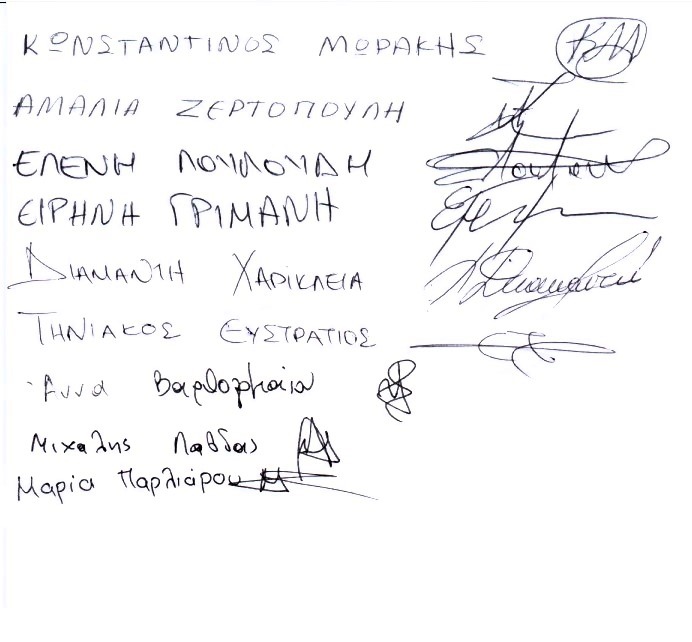 ΚΩΝΣΤΑΝΤΙΝΟΣ ΜΩΡΑΚΗΣ ΚΜ
ΑΜΑΛΙΑ ΖΕΡΤΟΠΟΥΛΗ
ΕΛΕΝΗ ΛΟΥΛΟΥΔΗ
ΕΙΡΗΝΗ ΓΡΙΜΑΝΗ
ΔΙΑΜΑΝΤΗ ΧΑΡΙΚΛΕΙΑ
ΤΗΝΙΑΚΟΣ ΕΥΣΤΡΑΤΙΟΣ
Άννα Βαρθολομαίου
Μιχαλης Λαβδας
Μαρία Παρλιάρου